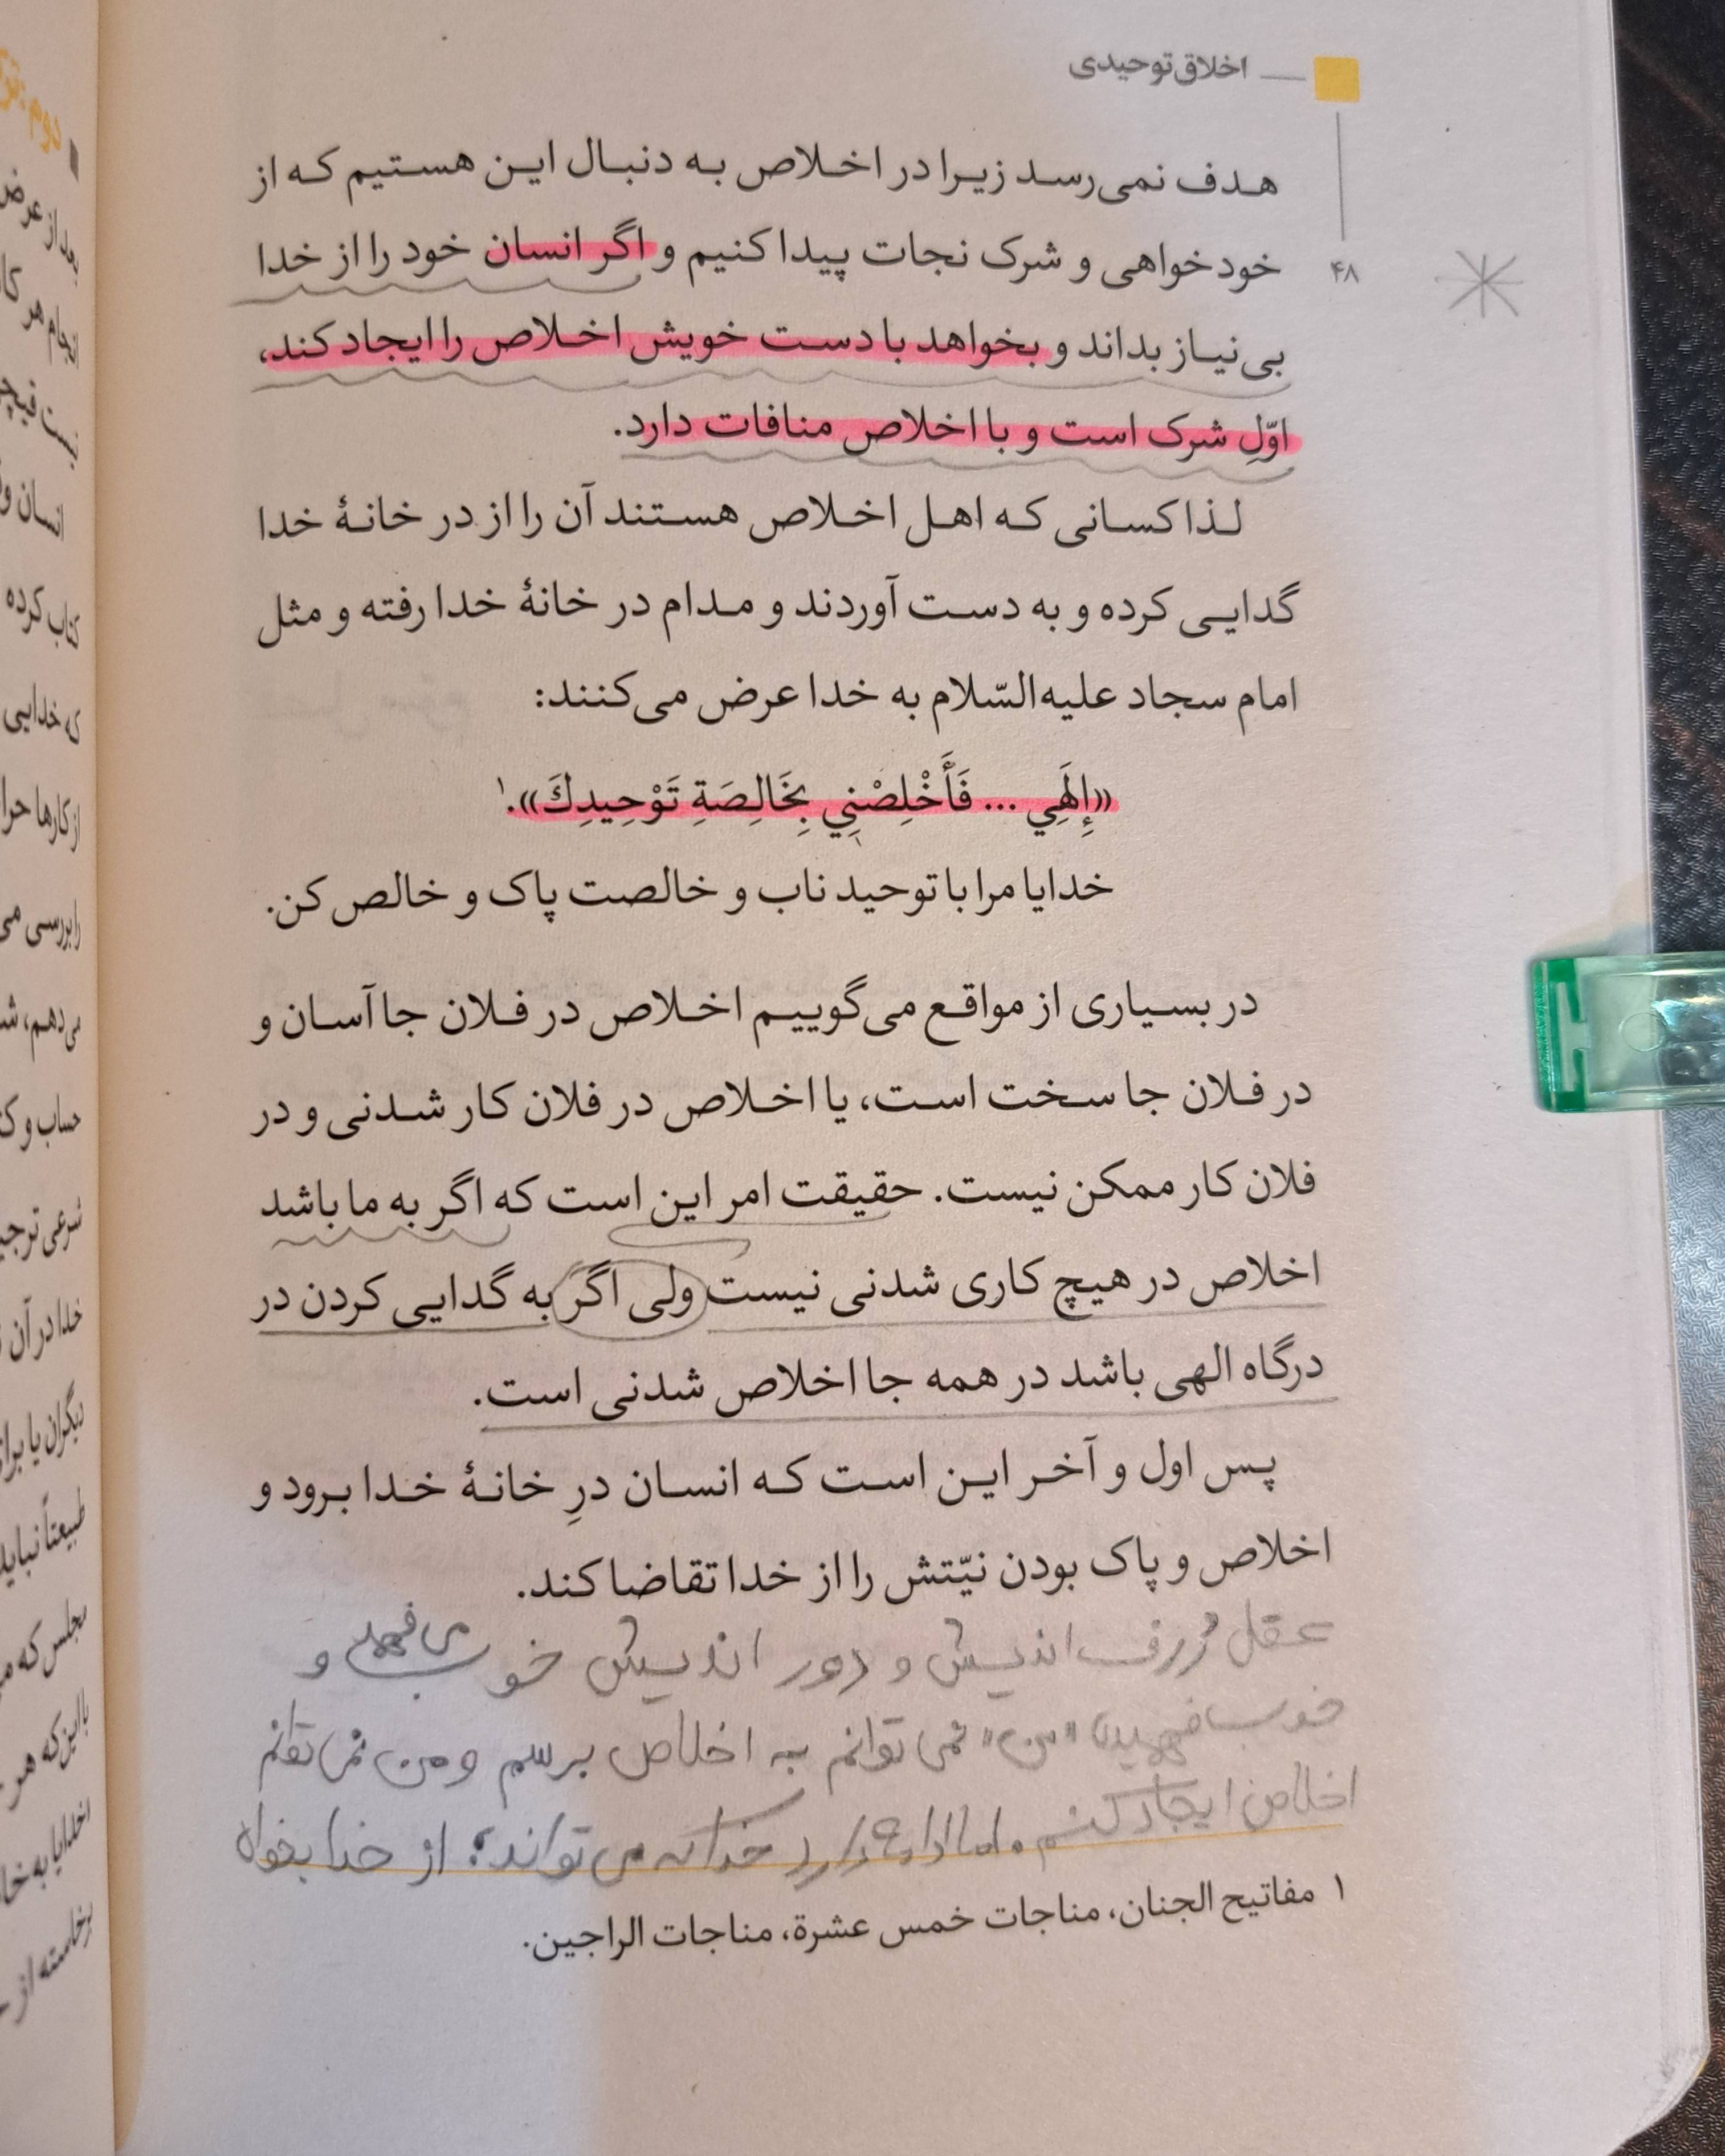 اخلاق توحیدی
هدف نمی‌رسد زیرا در اخلاص به دنبال این هستیم که از
خودخواهی و شرک نجات پیدا کنیم و اگر انسان خود را از خدا
۴۸
بی‌نیاز بداند و بخواهد با دست خویش اخلاص را ایجاد کند،
اوّلِ شرک است و با اخلاص منافات دارد.
لذا کسانی که اهل اخلاص هستند آن را از در خانهٔ خدا
گدایی کرده و به دست آوردند و مدام در خانهٔ خدا رفته و مثل
امام سجاد علیه‌السّلام به خدا عرض می‌کنند:
«إِلَهِي ... فَأَخْلِصْنِي بِخَالِصَةِ تَوْحِيدِكَ».۱
خدایا مرا با توحید ناب و خالصت پاک و خالص کن.
در بسیاری از مواقع می‌گوییم اخلاص در فلان جا آسان و
در فلان جا سخت است، یا اخلاص در فلان کار شدنی و در
فلان کار ممکن نیست. حقیقت امر این است که اگر به ما باشد
اخلاص در هیچ کاری شدنی نیست ولی اگر به گدایی کردن در
درگاه الهی باشد در همه جا اخلاص شدنی است.
پس اول و آخر این است که انسان درِ خانهٔ خدا برود و
اخلاص و پاک بودن نیّتش را از خدا تقاضا کند.
عقل ژرف اندیش و دور اندیش خوب می فهمد و
خوب فهمیدن "من" نمی توانم به اخلاص برسم و من نمی توانم
اخلاص ایجاد کنم. اما خدا که می تواند؛ از خدا بخواه
۱ مفاتیح الجنان، مناجات خمس عشرة، مناجات الراجین.